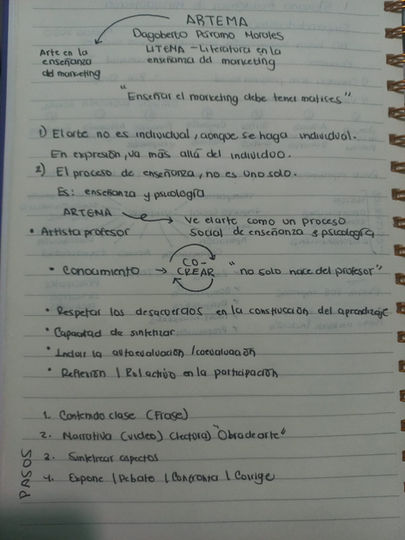 ARTEMA
Dagoberto Páramo Morales
Arte en la
enseñanza
del marketing
LITEMA - Literatura en la
enseñanza del marketing
"Enseñar el marketing debe tener matices"
1) El arte no es individual, aunque se haga individual.
En expresión, va más allá del individuo.
2) El proceso de enseñanza, no es uno solo.
Es: enseñanza y psicología
ARTEMA → ve el arte como un proceso
social de enseñanza & psicología
• Artista profesor
• Conocimiento → CO-
CREAR "no solo nace del profesor"
• Respetar los desacuerdos en la construcción del aprendizaje
• Capacidad de sintetizar
• Incluir la autoevaluación / coevaluación
• Reflexión / Rol activo en la participación
PASOS
1. Contenido clase (Frase)
2. Narrativa (video) (lectura) "Obra de arte"
3. Sintetizar aspectos
4. Expone / Debate / Confronta / Corrige